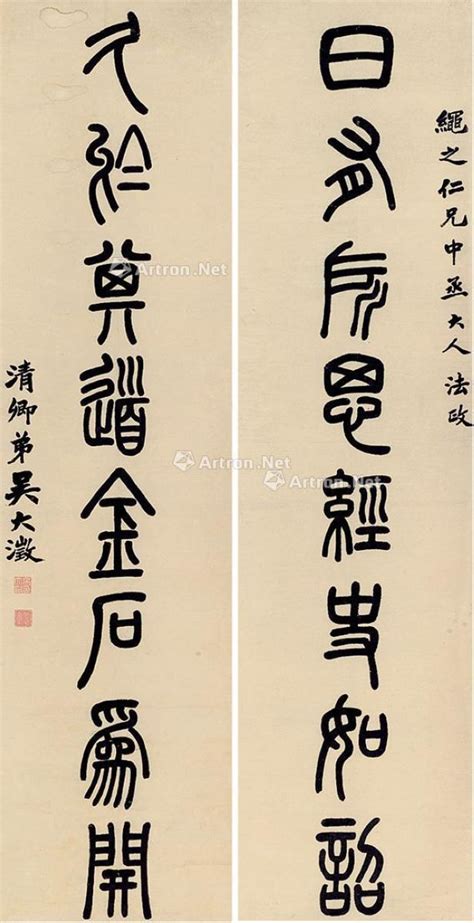 繩之仁兄中丞大人法政
日有所思經史如詔
久於其道金石爲開
清卿弟吳大澂
Artron.Net
Artron.Net
Artron.Net
Artron.Net